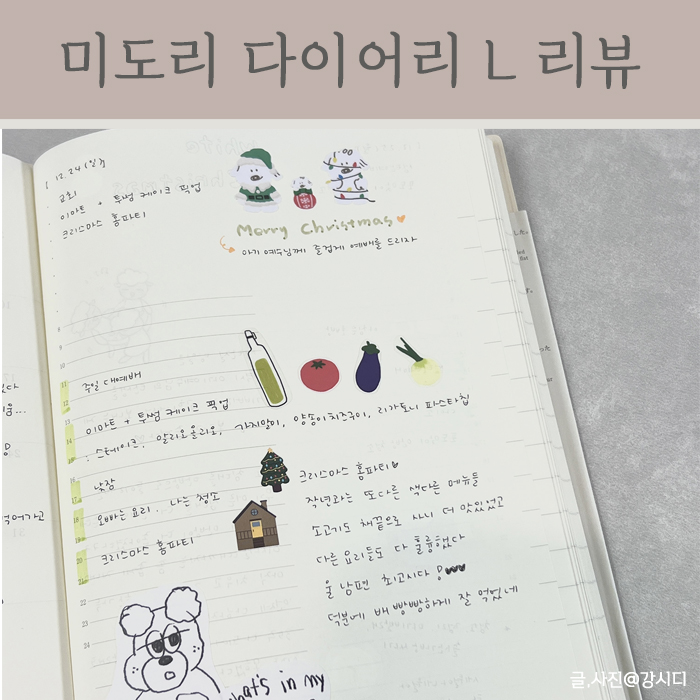 미도리 다이어리 L 리뷰
12.24 (일)
교회
이마트 + 투썸 케이크 픽업
크리스마스 홈파티
Merry Christmas
아기 예수님께 즐겁게 예배를 드리자
8
9
10
11 주일 대예배
12
13 이마트 + 투썸 케이크 픽업
14 스테이크, 알리오올리오, 가지말이, 양송이치즈구이, 리가토니 파스타칩
15
16 낮잠
17
18 오빠는 요리, 나는 청소
19
20 크리스마스 홈파티
21
22
23
24
크리스마스 홈파티
작년과는 또다른 색다른 메뉴들
소고기도 채끝으로 사니 더 맛있었고
다른 요리들도 다 훌륭했다
울 남편 최고시다
덕분에 배 빵빵하게 잘 먹었네
what's in my
먹어가고
글,사진@강시디